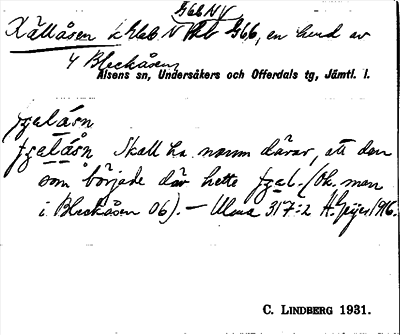 G66 NV
Källåsen i Glab. N G66, en lund av
4 Bleckåsen
Alsens sn, Undersåkers och Offerdals tg, Jämtl. l.
fzalåsn
fzalåsn Skall ha namn därav, att den
som började där hette fzal. (Ok. man
i Bleckåsen 06). — Ulma 317:2 H. Geijer 1916.
C. LINDBERG 1931.